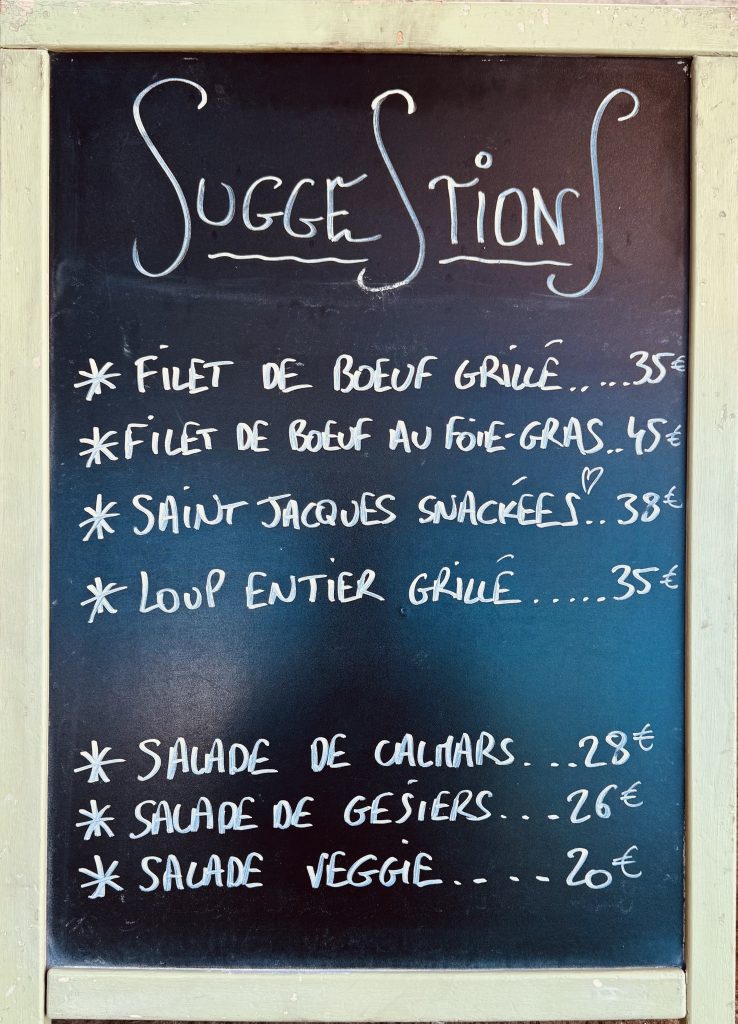 SUGGESTIONS
* FILET DE BOEUF GRILLÉ.....35€
* FILET DE BOEUF AU FOIE-GRAS..45€
* SAINT JACQUES SNACKÉES♡..38€
* LOUP ENTIER GRILLÉ......35€
* SALADE DE CALMARS....28€
* SALADE DE GESIERS....26€
* SALADE VEGGIE.....20€